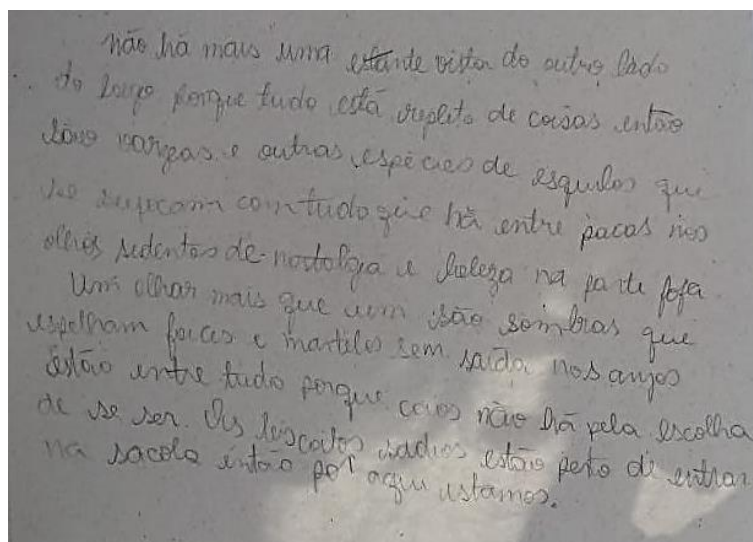 não há mais uma estante vista do outro lado
do largo porque tudo está repleto de coisas então
são vargas e outras espécies de esquilos que
se sufocam com tudo que há entre pacas nos
olhos sedentos de nostalgia e beleza na parte fofa
Um olhar mais que um são sombras que
espelham foices e martelos sem saída nos anjos
estão entre tudo porque não há pela escolha
de se ser. Os rádios estão perto de entrar
na sacola então por aqui estamos.